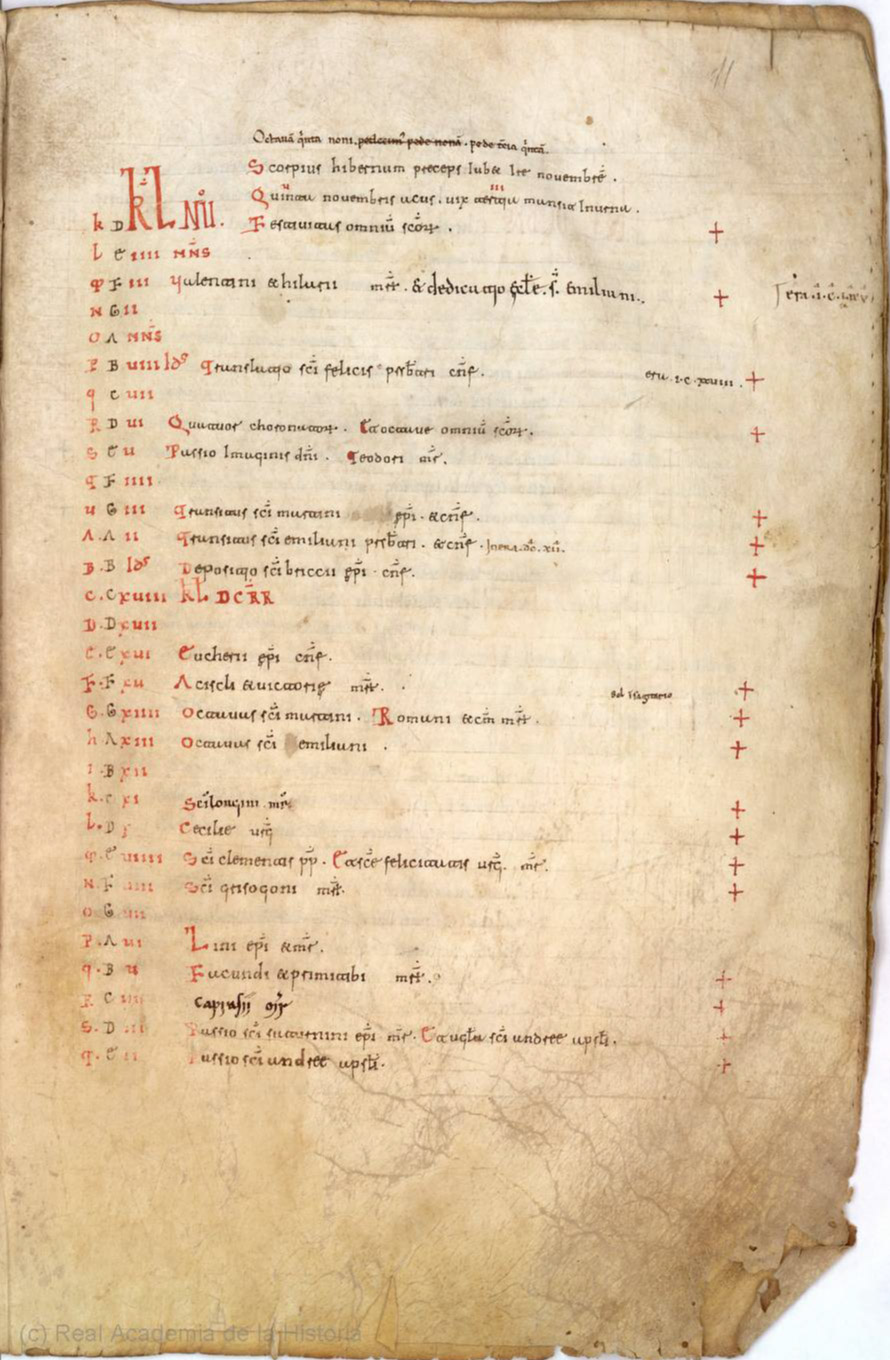 Octauā q̄nta noni, pede t̄cia q̄ntā.
Scorpius hibernum preceps Iube& Ire nouembrē.
Quinta nouembris acus. uix mansit In urna.
k D kl NŪ. Festiuitas omniū sc̄or.
l E iiii NN̄S
F iii Valentini & hilarii mr̄. & dedicatio s̄. Emiliani.
N G ii
O A NN̄S
P B uiii Ids translatio sc̄i felicis prsb̄teri cn̄f. era i.c.xxuiii.
q C uii
R D ui Quatuor choronator. Et octaue omniū sc̄or.
S E u Passio Imaginis dn̄i. Teodori mr̄.
F iiii
u G iii transitus sc̄i martini ep̄i. & cn̄f.
A. A ii transitus sc̄i emiliani prsb̄teri. & cn̄f.
B. B Ids Depositio sc̄i briccii ep̄i. cn̄f.
C. C xuiii kl DC̄RR
D. D xuii
E. E xui Eucherii ep̄i cn̄f.
F. F xu Aciscli & uictorie mr̄.
G. G xiiii Octauas sc̄i martini. Romani & cm̄ mr̄. sol Isagitario
h A xiii Octauas sc̄i emiliani.
I. B xii
k. C xi Sc̄i longini mr̄
L. D x Cecilie urḡ
E uiiii Sc̄i clementis pp̄. Et sc̄e felicitatis urḡ. mr̄.
N F uiii Sc̄i grisogoni mr̄.
O G uii
P. A ui Lini ep̄i & mr̄.
q. B u Facundi & primitibi mr̄.
R C iiii Caprasii mr̄
S. D iii Passio sc̄i saturnini ep̄i mr̄. Et uigl̄a sc̄i andree apstl̄i.
E ii Passio sc̄i andree apstl̄i.
(c) Real Academia de la Historia